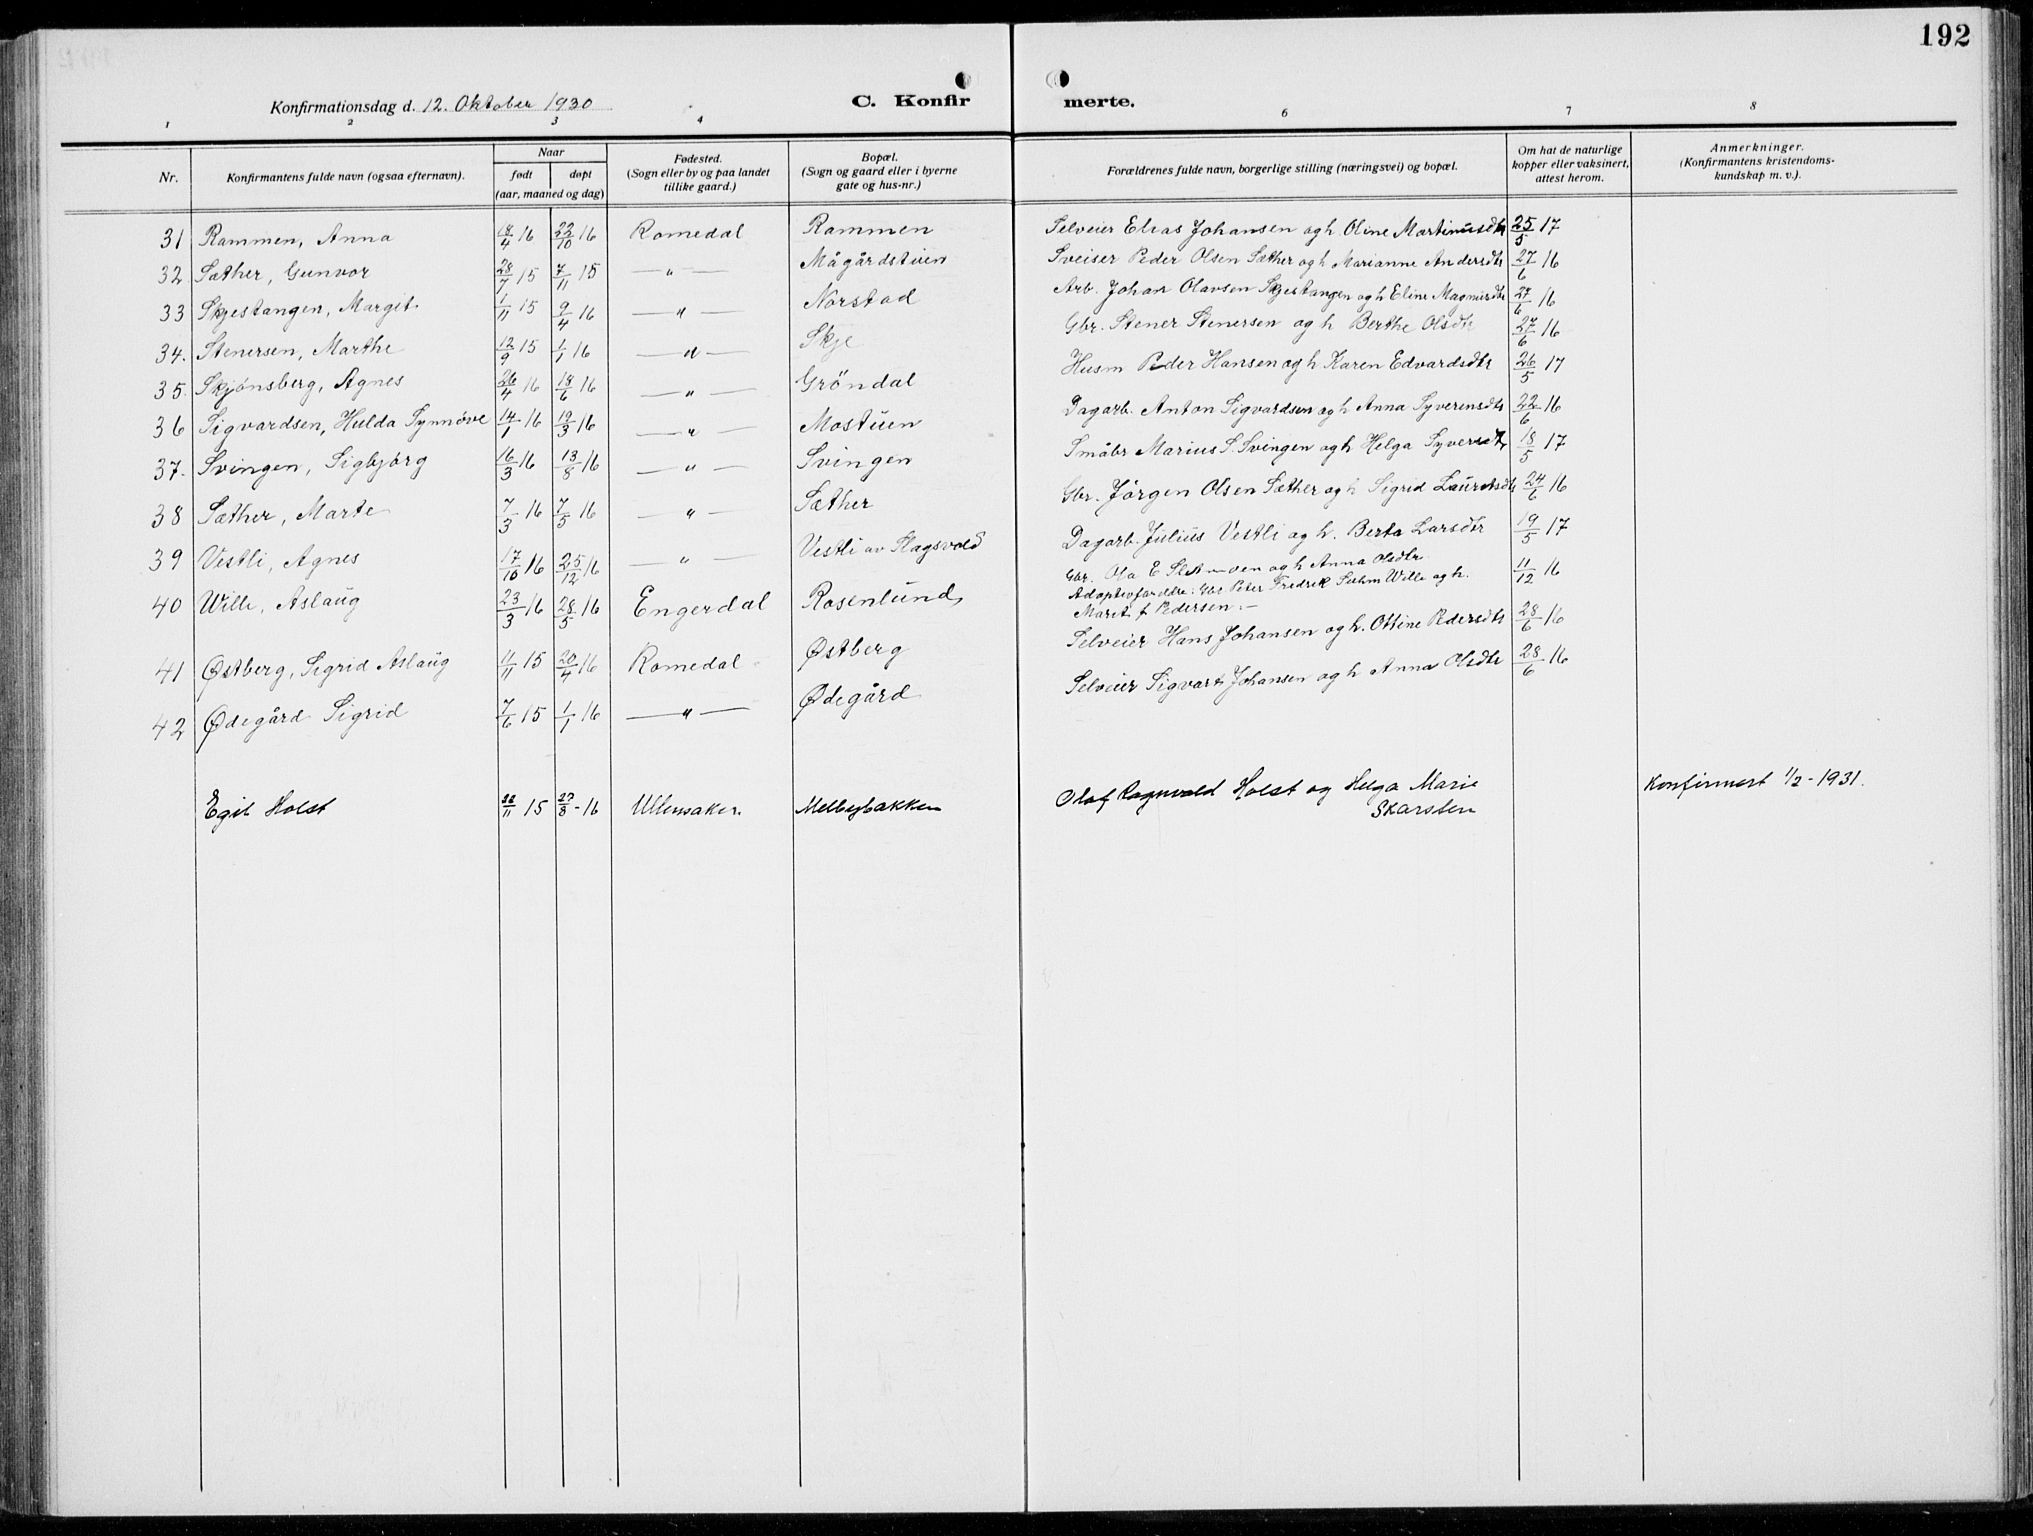 192
Konfirmationsdag d. 12. Oktober 1930
C. Konfir merte.
1 2 3 4 6 7 8
Nr.
Konfirmantens fulde navn (ogsaa efternavn).
Naar
født døpt
(aar, maaned og dag)
Fødested.
(Sogn eller by og paa landet
tillike gaard.)
Bopæl.
(Sogn og gaard eller i byerne
gate og hus-nr.)
Forældrenes fulde navn, borgerlige stilling (næringsvei) og bopæl.
Om hat de naturlige
kopper eller vaksinert,
attest herom.
Anmerkninger.
(Konfirmantens kristendoms-
kundskap m. v.).
31 Rammen, Anna 18/4 16 22/10 16 Romedal Rammen Selveier Elias Johansen og h. Oline Martinusdtr 25/5 17
32 Sæther, Gunvor 28/7 15 7/11 15 — " — Mågårdstuen Sveiser Peder Olsen Sæther og h Marianne Andersdtr 27/6 16
33 Skjestangen, Margit 1/11 15 9/4 16 — " — Norstad Arb. Johan Olavsen Skjestangen og h Eline Magnusdtr 27/6 16
34. Stenersen, Marthe 12/9 15 1/1 16 — " — Skje Gbr. Stener Stenersen og h Berthe Olsdtr 27/6 16
35. Skjønsberg, Agnes 26/4 16 18/6 16 — " — Gröndal Husm Peder Hansen og h Karen Edvardsdtr 26/5 17
36 Sigvardsen, Hulda Synnøve 14/1 16 19/3 16 — " — Mostuen Dagarb. Anton Sigvardsen og h Anna Syverensdtr 22/6 16
37. Svingen, Sigbjørg 16/3 16 13/8 16 — " — Svingen Småbr Marius S. Svingen og h Helga Syversdtr 18/5 17
38 Sæther, Marte 7/3 16 7/5 16 — " — Sæther Gbr. Jörgen Olsen Sæther og h Sigrid Lauritsdtr 24/6 16
39 Vestli, Agnes 17/10 16 25/12 16 — " — Vestli av Slagsvold Dagarb. Julius Vestli og h. Berta Larsdtr 19/5 17
40 Wille, Aslaug 23/3 16 28/5 16 Engerdal Rosenlund Gbr. Ola E og h Anna Olsdtr. 11/12 16
Adoptivforeldre: Gbr Peter Fredrik Suhm Wille og h.
Marit f Pedersen.—
41 Østberg, Sigrid Aslaug 11/11 15 20/4 16 Romedal Østberg Selveier Hans Johansen og h. Ottine Pedersdtr 28/6 16
42 Ødegård Sigrid 7/6 15 1/1 16 — " — Ødegård Selveier Sigvart Johansen og h Anna Olsdtr 28/6 16
Egil Holst 22/11 15 27/8-16 Ullensaker. Melbybakken Olaf Ragnvald Holst og Helga Marie Konfirmert 1/2-1931.
Skarsten